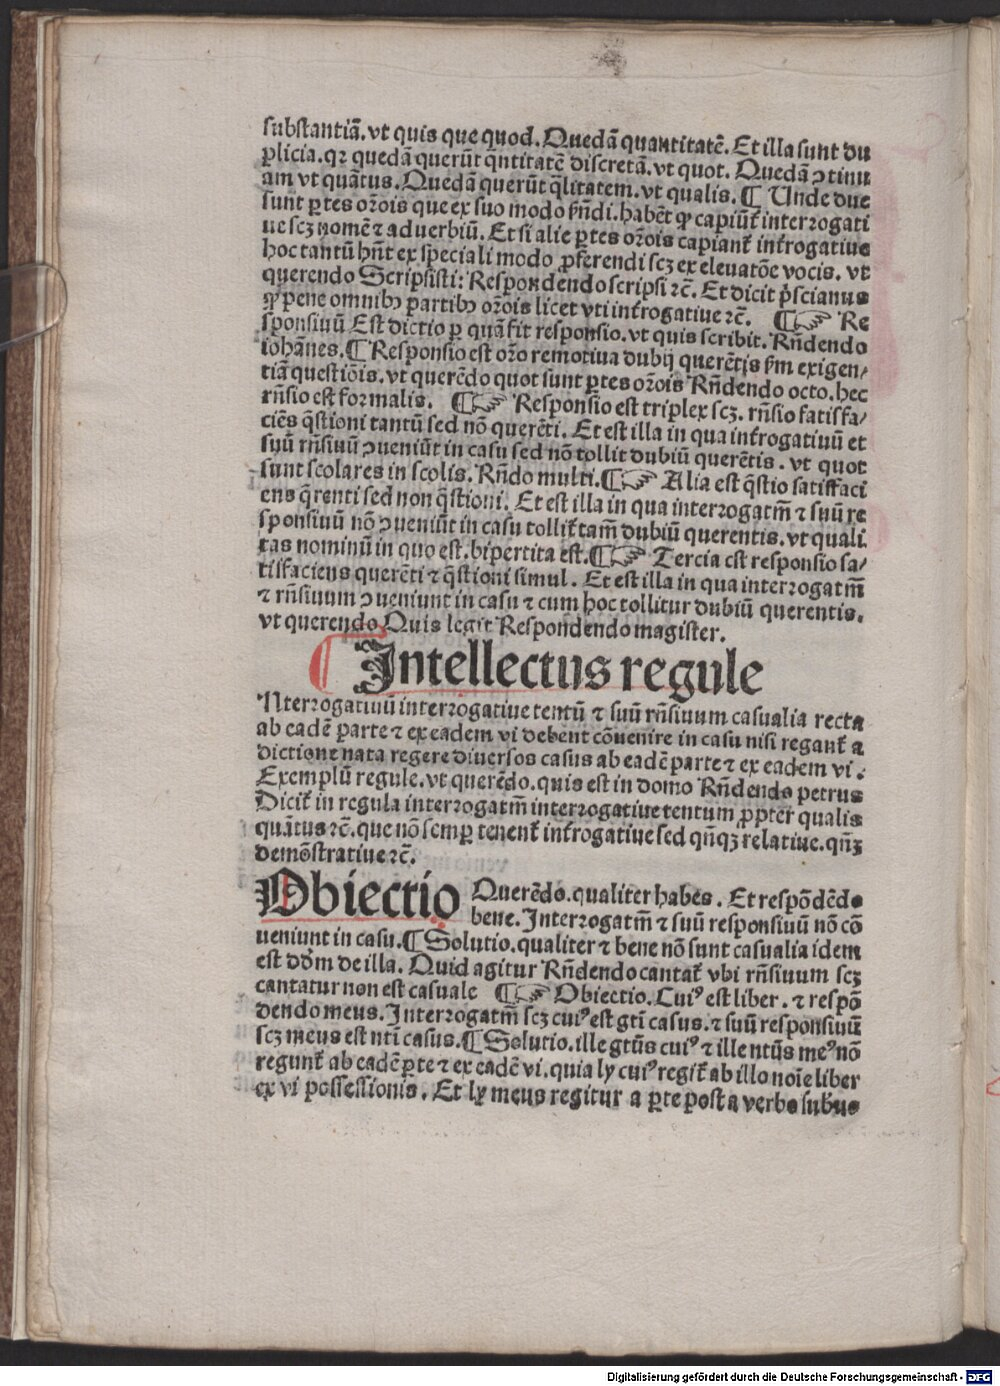 substantiā. vt quis que quod. Quedā quantitatē. Et illa sunt du
plicia. qꝛ quedā querūt q̄ntitatē discretā. vt quot. Quedā ↄtinu
am vt quātus. Quedā querūt q̄litatem. vt qualis. ¶ Unde due
sunt ꝑtes oꝛōis que ex suo modo ꝓ̄ndi. habēt ꝙ capiūt̄ interꝛogati
ue scꝫ nomē ⁊ aduerbiū. Et si alie ꝑtes oꝛōis capiant̄ int̄rogatiue
hoc tantū hn̄t ex speciali modo ꝓferendi scꝫ ex eleuatōe vocis. vt
querendo Scripsisti: Respondendo scripsi ⁊c̄. Et dicit p̄scianus
ꝙ pene omnibꝫ partibꝫ oꝛōis licet vti int̄rogatiue ⁊c̄. ¶☞ Re
sponsiuū Est dictio ꝑ quā fit responsio. vt quis scribit. Rn̄dendo
iohānes. ¶ Responsio est oꝛō remotiua dubij querētis ẜm exigen⸗
tiā questiōis. vt querēdo quot sunt ꝑtes oꝛōis Rn̄dendo octo. hec
rn̄sio est formalis. ¶☞ Responsio est triplex scꝫ. rn̄sio satisfa⸗
ciēs q̄stioni tantū sed nō querēti. Et est illa in qua int̄rogatiuū et
suū rn̄siuū ↄueniūt in casu sed nō tollit dubiū querētis. vt quot
sunt scolares in scolis. Rn̄do multi. ¶☞ Alia est q̄stio satisfaci
ens q̄renti sed non q̄stioni. Et est illa in qua interꝛogatm̄ ⁊ suū re
sponsiuū nō ↄueniūt in casu tollit̄ tam̄ dubiū querentis. vt quali
tas nominū in quo est. bipertita est. ¶☞ Tercia est responsio sa⸗
tisfaciens querēti ⁊ q̄stioni simul. Et est illa in qua interꝛogatm̄
⁊ rn̄siuum ↄueniunt in casu ⁊ cum hoc tollitur dubiū querentis.
vt querendo Quis legit Respondendo magister.
¶ Intellectus regule
INterꝛogatiuū interꝛogatiue tentū ⁊ suū rn̄siuum casualia recta
ab eadē parte ⁊ ex eadem vi debent cōuenire in casu nisi regant̄ a
dictione nata regere diuersos casus ab eadē parte ⁊ ex eadem vi.
Exemplū regule. vt querēdo. quis est in domo Rn̄dendo petrus
Dicit̄ in regula interꝛogatm̄ interꝛogatiue tentum ꝓpter qualis
quātus ⁊c̄. que nō semꝑ tenent̄ int̄rogatiue sed qn̄qꝫ relatiue. qn̄ꝫ
demōstratiue ⁊c̄.
Obiectio Querēdo. qualiter habes. Et respōdēdo
bene. Interꝛogatm̄ ⁊ suū responsiuū nō cō
ueniunt in casu. ¶ Solutio. qualiter ⁊ bene nō sunt casualia idem
est dōm de illa. Quid agitur Rn̄dendo cantat̄ vbi rn̄siuum scꝫ
cantatur non est casuale ¶☞ Obiectio. Cuiꝰ est liber. ⁊ respō
dendo meus. Interꝛogatm̄ scꝫ cuiꝰ est gt̄i casus. ⁊ suū responsiuū
scꝫ meus est nt̄i casus. ¶ Solutio. ille gt̄us cuiꝰ ⁊ ille nt̄us meꝰ nō
regunt̄ ab eadē ꝑte ⁊ ex eadē vi. quia ly cuiꝰ regit̄ ab illo noīe liber
ex vi possessionis. Et ly meus regitur a ꝑte post a verbo sub̄us
Digitalisierung gefördert durch die Deutsche Forschungsgemeinschaft - DFG